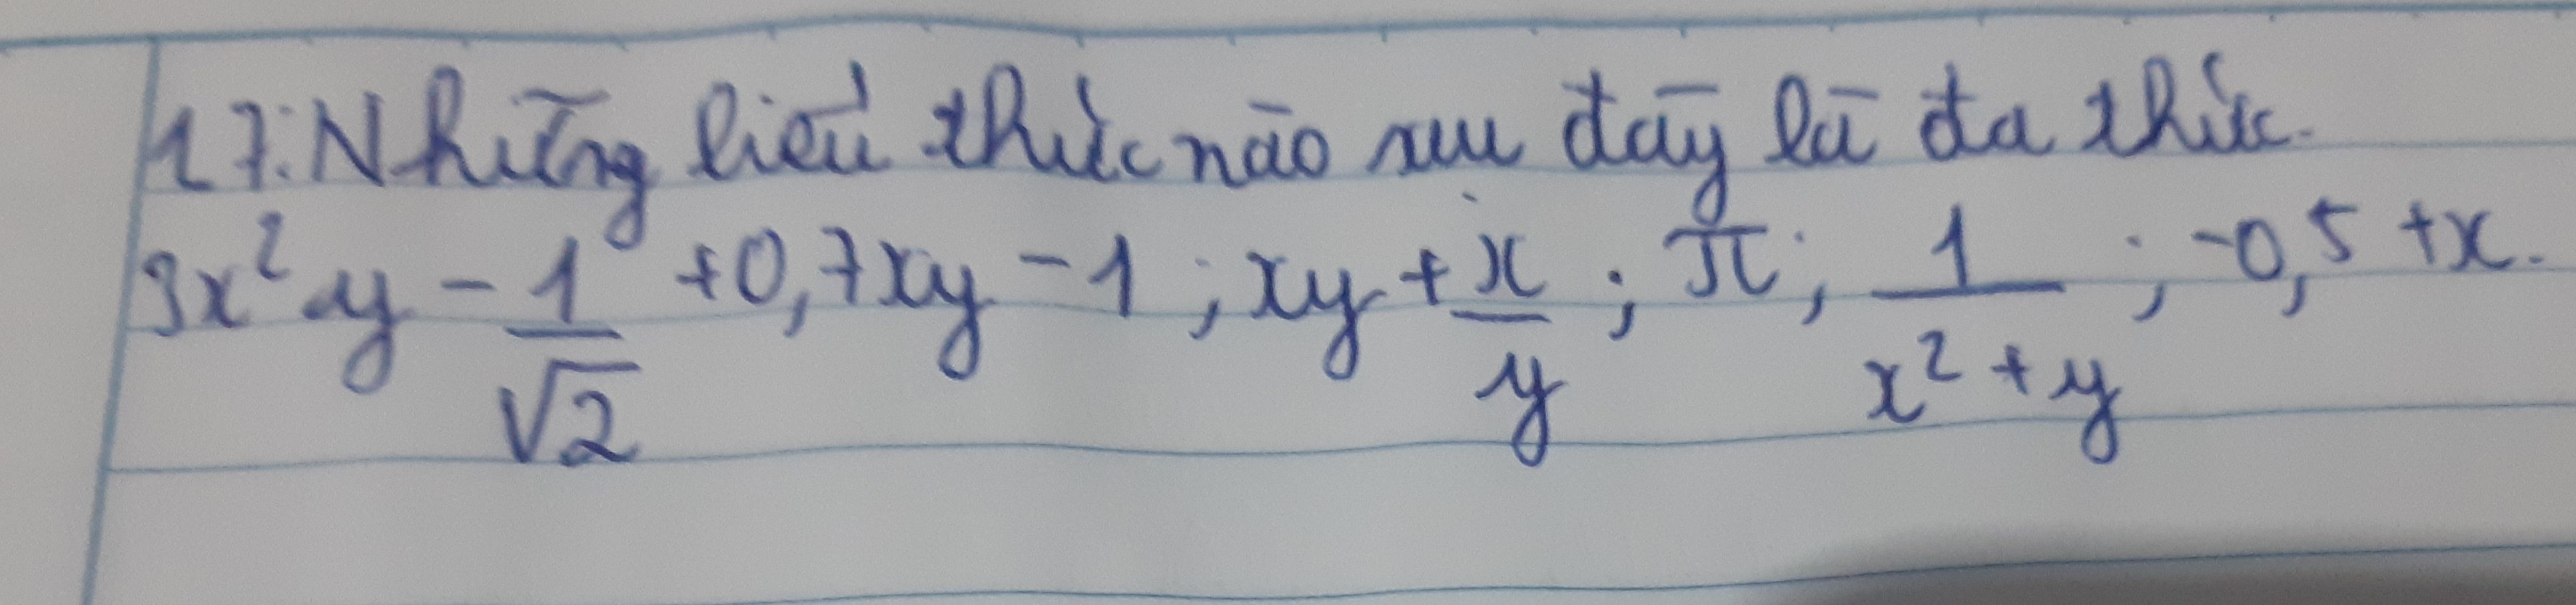 17: Những biểu thức nào sau đây là đa thức.
3x²y - 1/√2 + 0,7xy - 1 ; xy + x/y ; π ; 1/(x² + y) ; -0,5 + x.